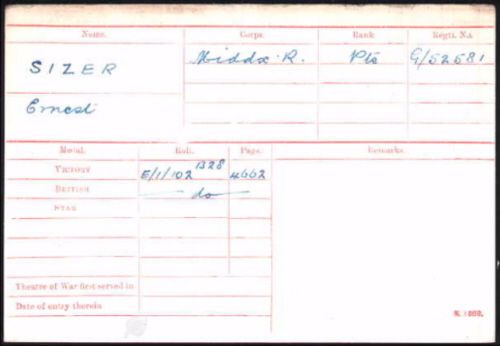 Name. Corps. Rank Regtl. No.
SIZER Middx. R. Pte G/52681
Ernest
Medal. Roll. Page. Remarks.
VICTORY E/1/102 B28 4662
BRITISH do
STAR
Theatre of War first served in
Date of entry therein
K. 1380.